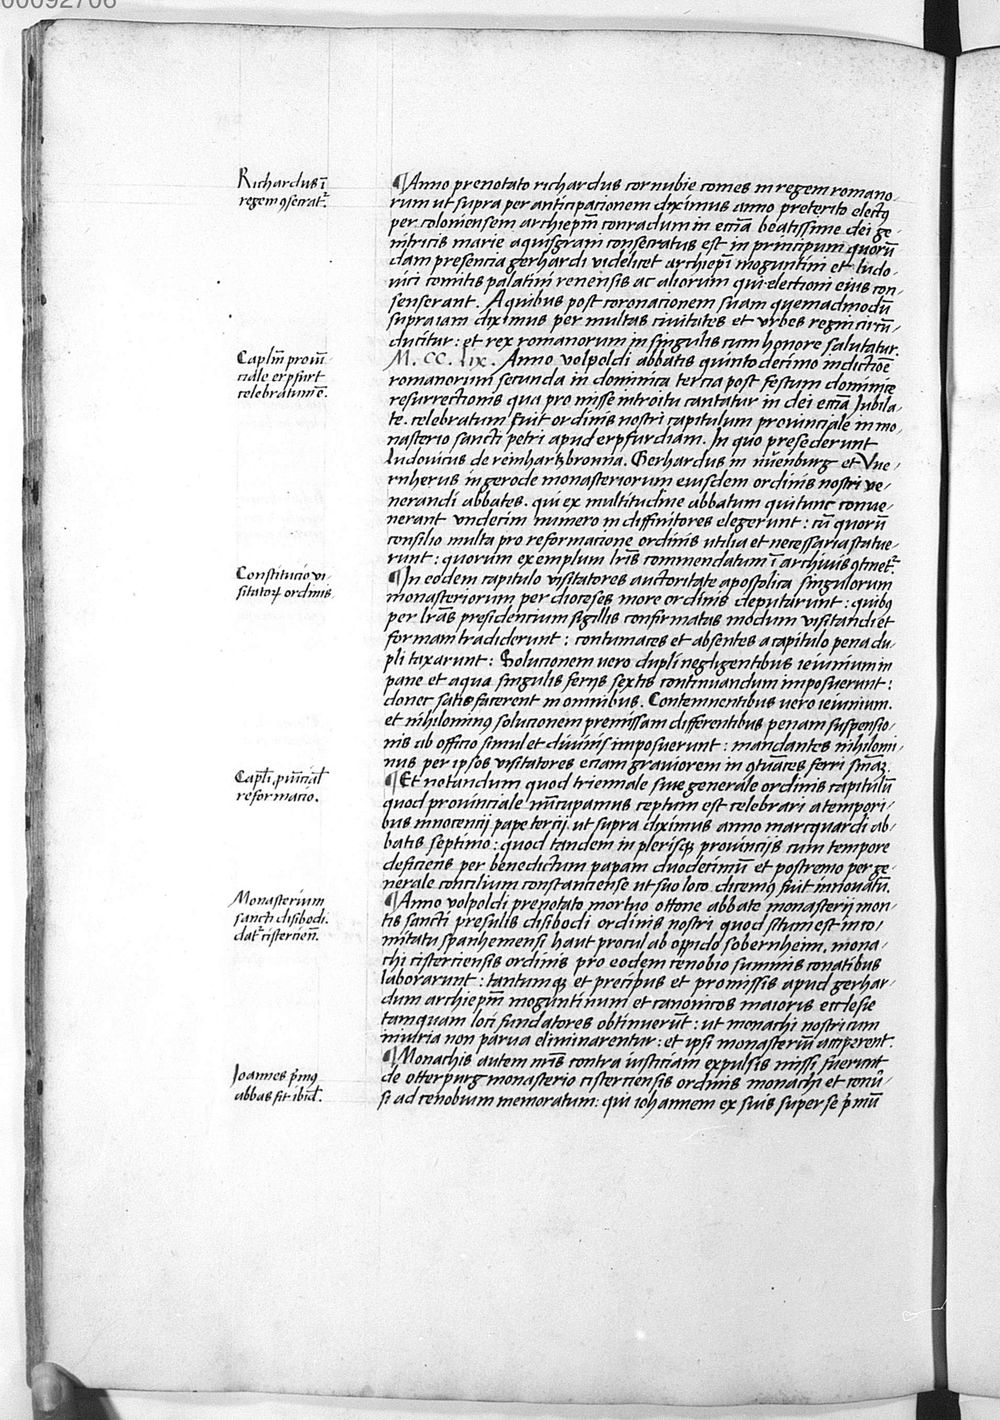 00092706
Richardus ī
regem ꝯsecratꝛ.
¶Anno prenotato richardus cornubie comes in regem romano-
rum ut supra per anticipacionem diximus anno preterito electꝯ
per coloniensem archiepm̄ conradum in eccīa beatissime dei ge-
nitricis marie aquisgrani consecratus est in principum quorū
dam presencia gerhardi videlicet archiepī moguntini et ludo-
uici comitis palatini renensis ac aliorum qui electioni eius con-
senserant. A quibus post coronacionem suam quemadmodū
supra iam diximus per multas ciuitates et vrbes regni circū-
ducitur: et rex romanorum in singulis cum honore salutatur.
Caplm̄ prouī
ciale erpfurt
celebratum ē.
M. CC. lix. Anno volpoldi abbatis quinto decimo indictioē
romanorum secunda in dominica tercia post festum dominice
resurrectionis qua pro misse introitu cantatur in dei eccīa Jubila-
te. celebratum fuit ordinis nostri capitulum prouinciale in mo-
nasterio sancti petri apud erpfurdiam. In quo presederunt
ludouicus de reinhartzbronna. Gerhardus in nüenburg et Vue-
rnherus in gerode monasteriorum eiusdem ordinis nostri ve-
nerandi abbates. qui ex multitudine abbatum qui tunc conue-
nerant vndecim numero in diffinitores elegerunt: cū quorū
consilio multa pro reformacione ordinis utilia et necessaria statue-
runt: quorum exemplum lr̄is commendatum ī archiuis ꝯtinetꝛ.
Constitucio vi-
sitatoꝝ ordinis.
¶In eodem capitulo visitatores auctoritate apostolica singulorum
monasteriorum per dioceses more ordinis deputarunt: quibꝯ
per lr̄as presidencium sigillis confirmatas modum visitandi et
formam tradiderunt: contumaces et absentes a capitulo pena du-
pli taxarunt: Solucionem uero dupli negligentibus ieiunium in
pane et aqua singulis ferijs sextis continuandum imposuerunt:
donec satisfacerent in omnibus. Contemnentibus uero ieiunium.
et nihilominꝯ solucionem premissam differentibus penam suspensio-
nis ab officio simul et diuinis imposuerunt: mandantes nihilomi-
nus per ipsos visitatores eciam grauiorem in ꝯtūaces ferri sn̄iaꝫ.
Caplī ꝓuīcial̄
reformacio.
¶Et notandum quod triennale siue generale ordinis capitulū
quod prouinciale nūcupamus ceptum est celebrari a tempori-
bus innocencij pape tercij. ut supra diximus anno marcquardi ab-
batis septimo: quod tandem in plerisqꝫ prouincijs cum tempore
deficiens per benedictum papam duodecimū et postremo per ge-
nerale concilium constantiense ut suo loco dicemꝯ fuit innouatū.
Monasterium
sancti disibodi.
datꝛ cisterciēn.
¶Anno volpoldi prenotato mortuo ottone abbate monasterij mon-
tis sancti presulis disibodi ordinis nostri quod situm est in co-
mitatu spanhemensi haut procul ab oppido sobernheim. mona-
chi cisterciensis ordinis pro eodem cenobio summis conatibus
laborarunt: tantumqꝫ et precibus et promissis apud gerhar-
dum archiepm̄ moguntinum et canonicos maioris ecclesie
tamquam loci fundatores obtinuerūt: ut monachi nostri cum
iniuria non parua eliminarentur: et ipsi monasteriū acciperent.
Joannes p̄mꝯ
abbas fit ibid̄.
¶Monachis autem nr̄is contra iusticiam expulsis missi fuerunt
de otterpurg monasterio cisterciensis ordinis monachi et conū-
si ad cenobium memoratum: qui iohannem ex suis super se p̄mū